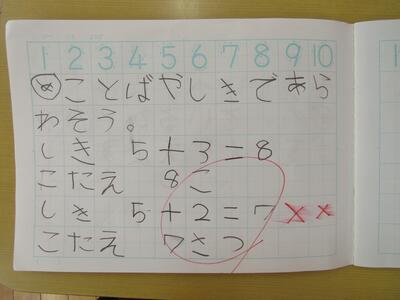 1 2 3 4 5 6 7 8 9 10
めことばやしきであら
わそう。
しき 5+3=8
こたえ 8こ
しき 5+2=7
こたえ 7さつ